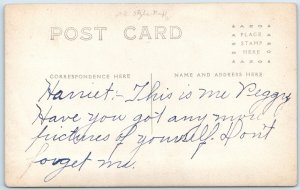 POST CARD
AZO AZO
PLACE
STAMP
HERE
AZO AZO
CORRESPONDENCE HERE NAME AND ADDRESS HERE
Harriet:- This is me Peggy
Have you got any more
pictures of yourself. Don't
forget me.